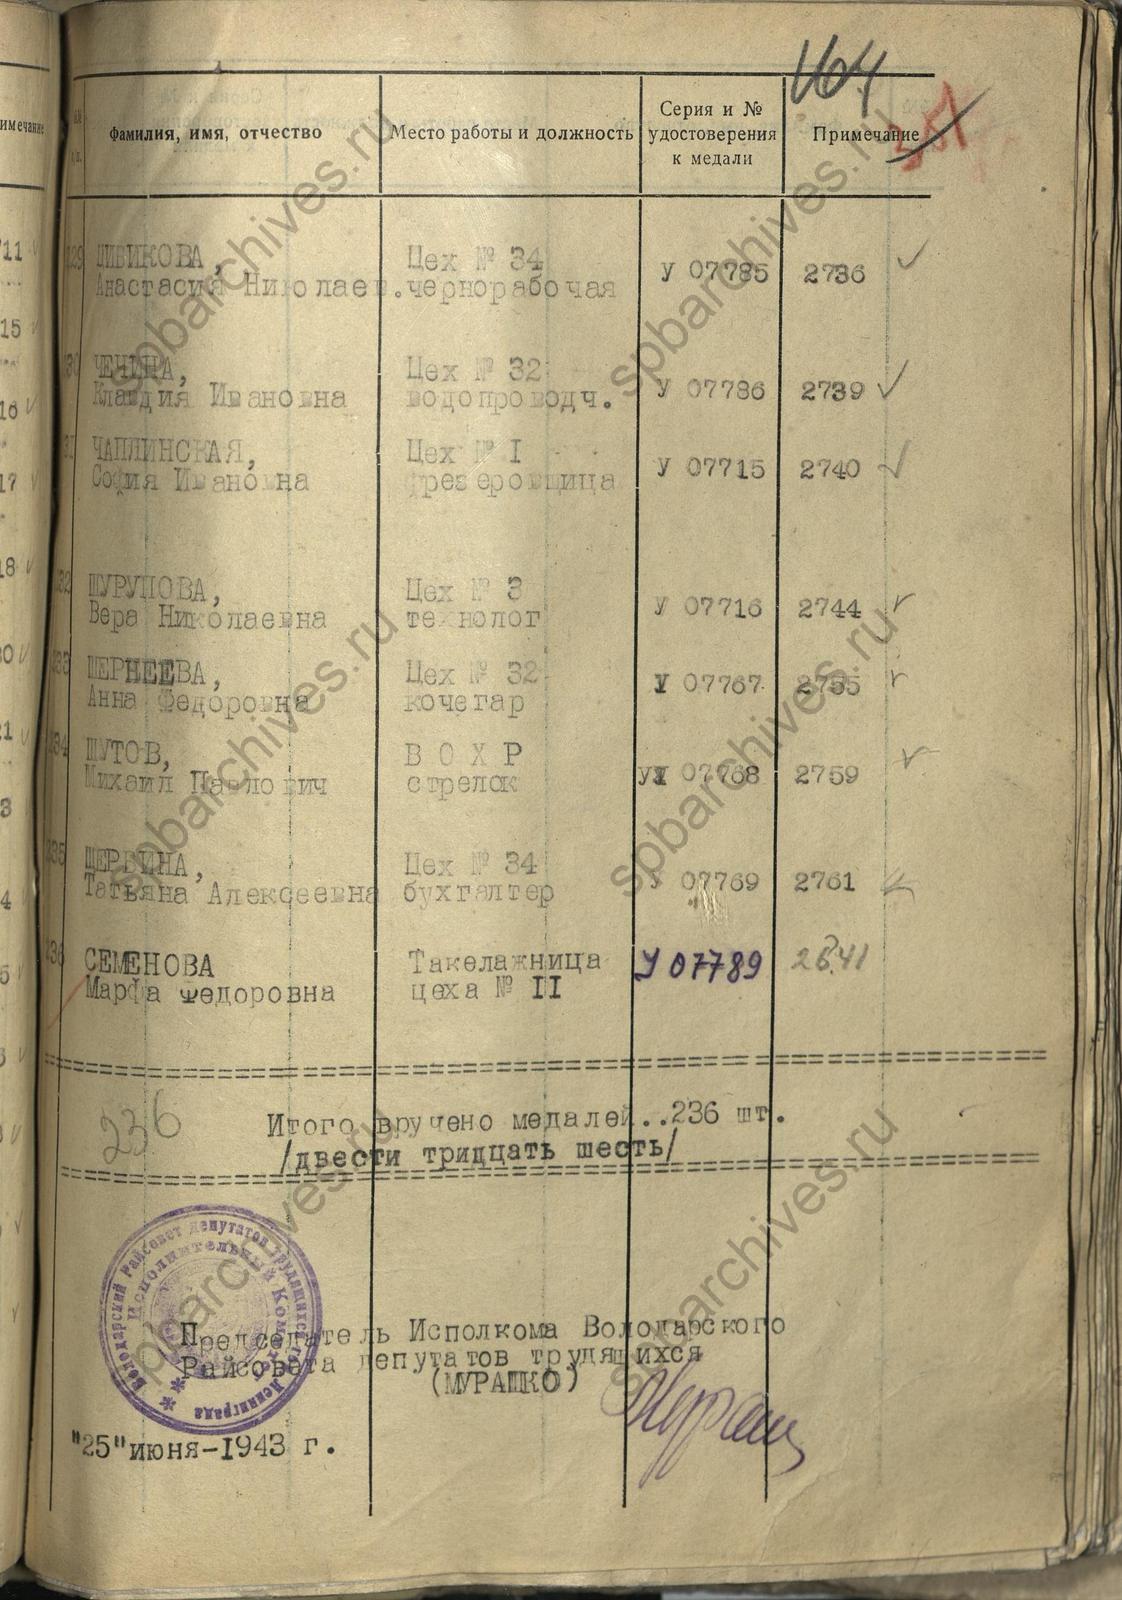 164
351
Фамилия, имя, отчество
Место работы и должность
Серия и № удостоверения к медали
Примечание
229 ЦИВИКОВА, Цех № 34
Анастасия Николаев. чернорабочая У 07785 2736
230 ЧЕЧИНА, Цех № 32
Клавдия Ивановна водопроводч. У 07786 2739
231 ЧАПЛИНСКАЯ, Цех № I
София Ивановна фрезеровщица У 07715 2740
232 ШУРУПОВА, Цех № 3
Вера Николаевна технолог У 07716 2744
233 ШЕРНЕЕВА, Цех № 32
Анна Федоровна кочегар У 07767 2755
234 ШУТОВ, В О Х Р
Михаил Павлович стрелок У 07768 2759
235 ЩЕРБИНА, Цех № 34
Татьяна Алексеевна бухгалтер У 07769 2761
236 СЕМЕНОВА Такелажница У 07789 2641
Марфа Федоровна цеха № II
236
Итого вручено медалей..236 шт.
/двести тридцать шесть/
Володарский Райсовет депутатов трудящихся г. Ленинграда
Исполнительный Комитет
Председатель Исполкома Володарского
Райсовета депутатов трудящихся
(МУРАШКО)
"25"июня-1943 г.
имечание
711
15
16
17
18
spbarchives.ru
spbarchives.ru
spbarchives.ru
spbarchives.ru
spbarchives.ru
spbarchives.ru